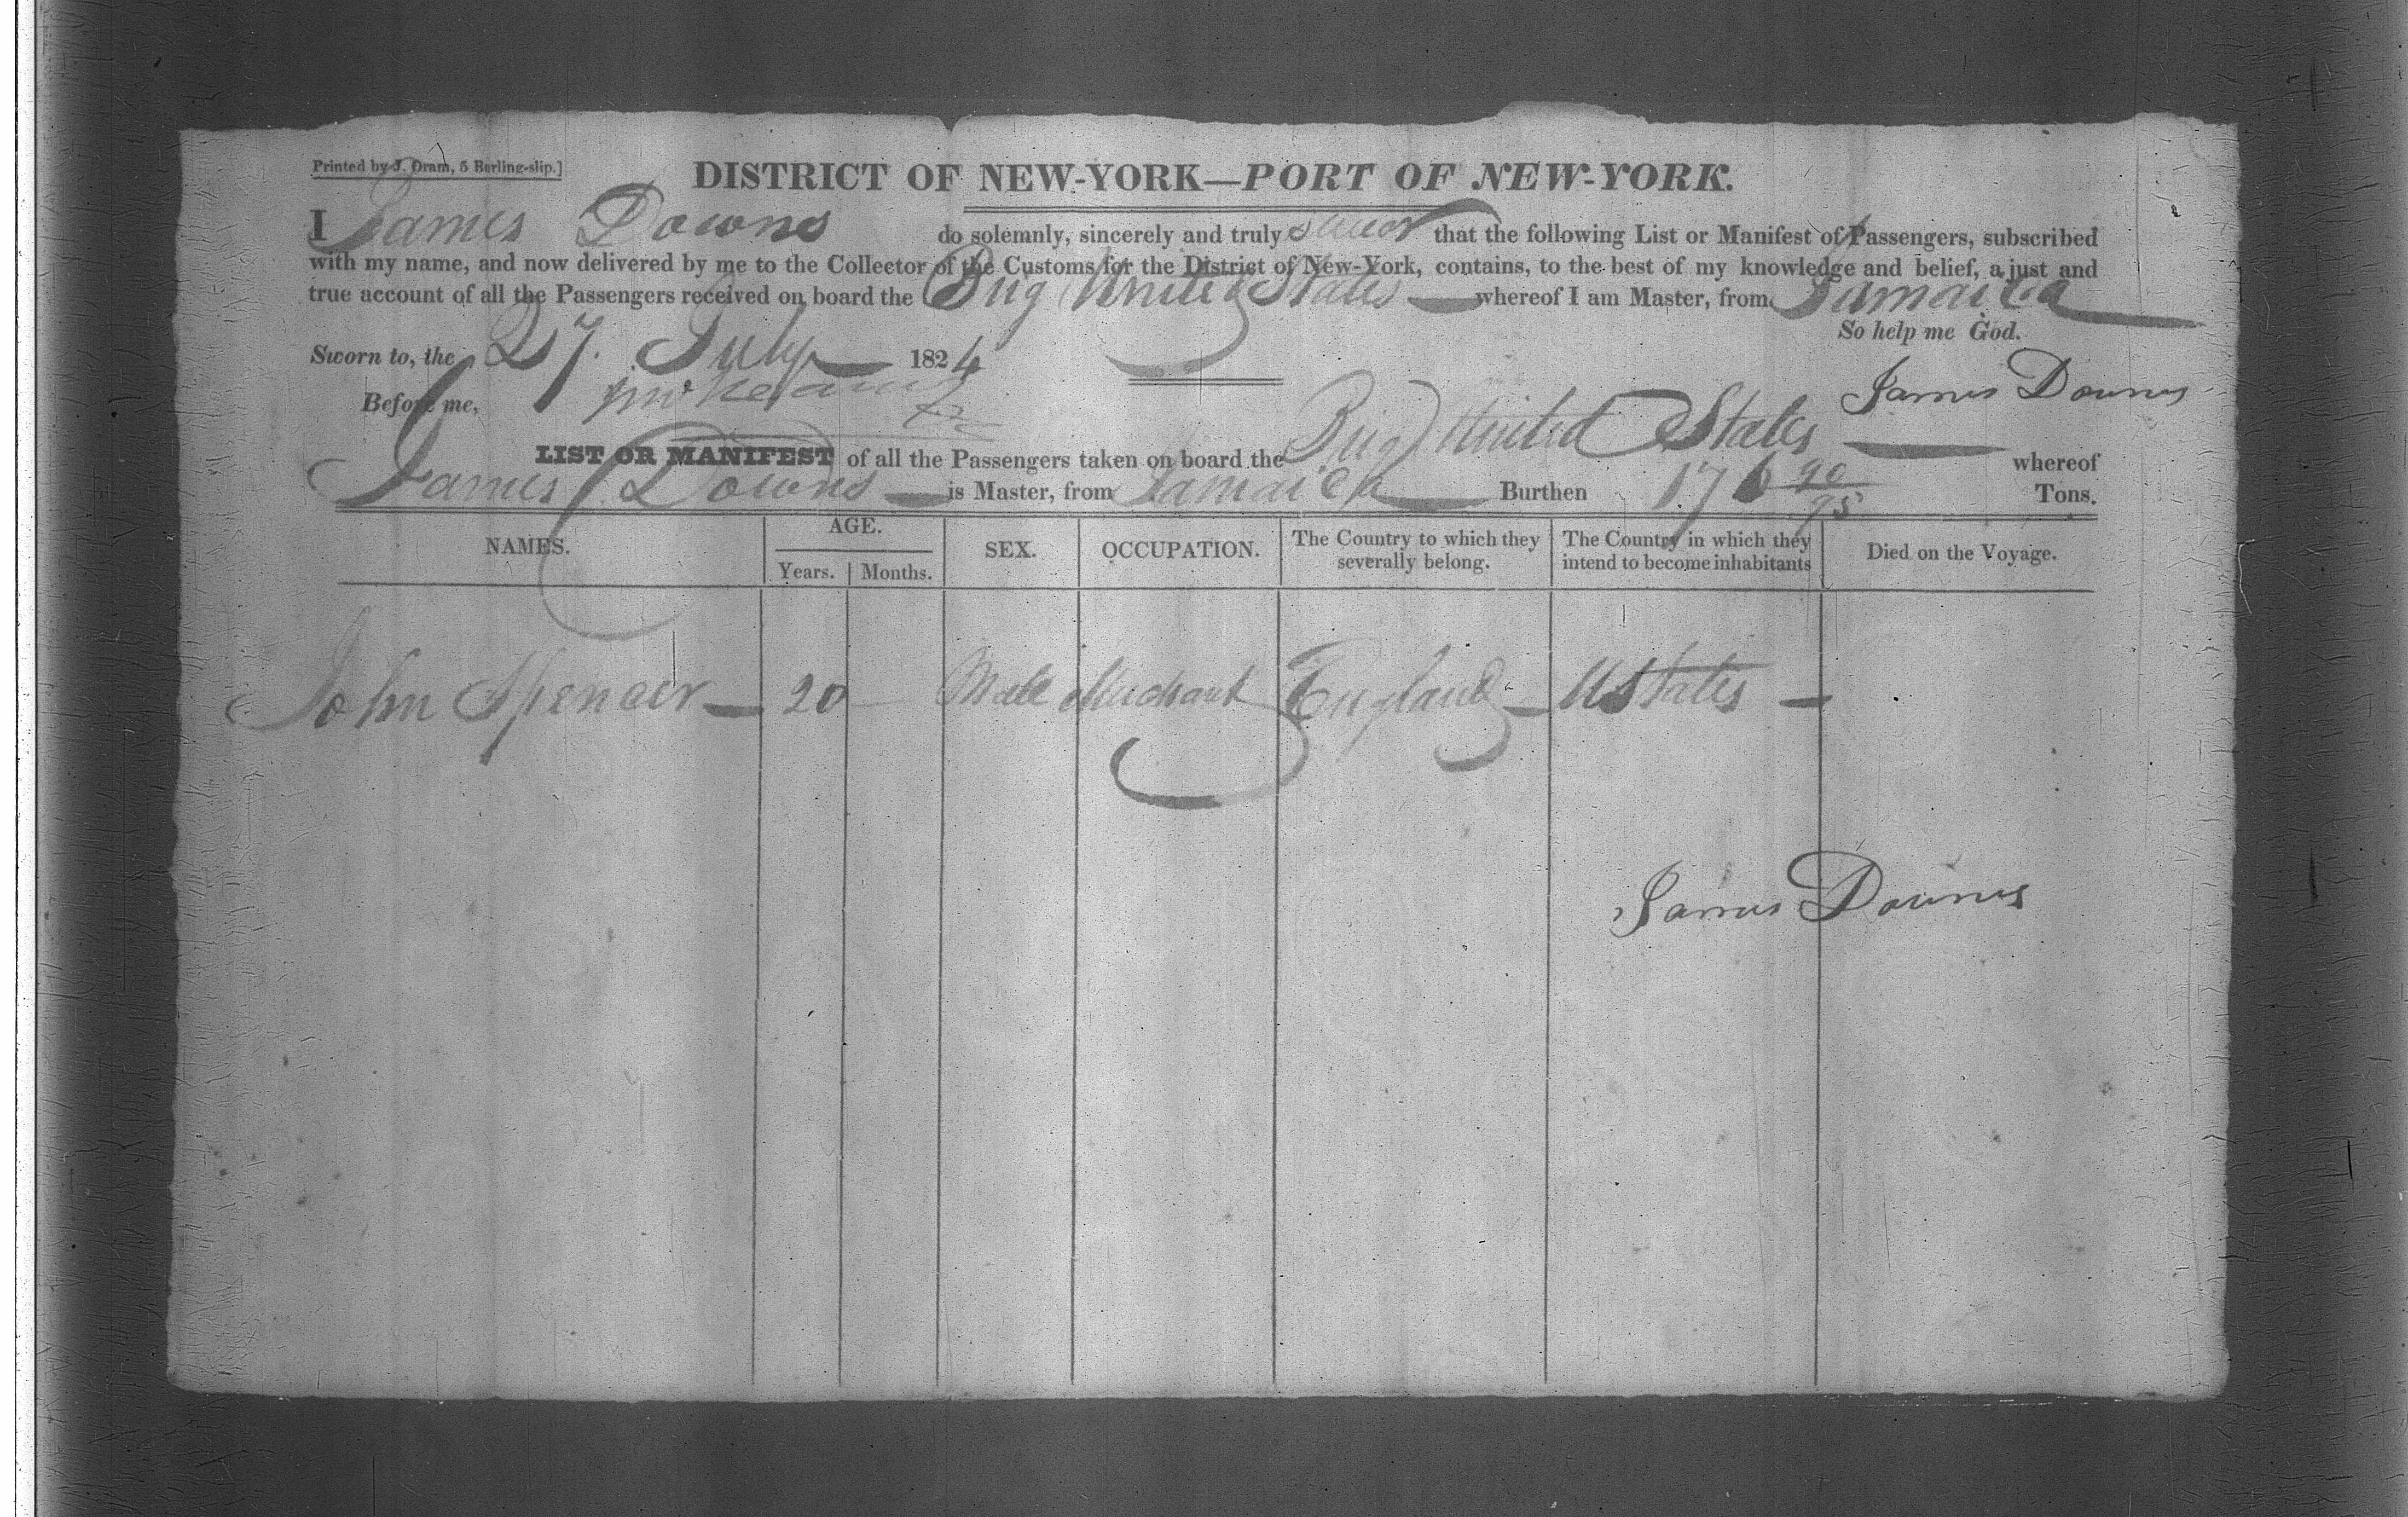 Printed by J. Oram, 5 Burling-slip.]
DISTRICT OF NEW-YORK—PORT OF NEW-YORK.
I James Downs do solemnly, sincerely and truly swear that the following List or Manifest of Passengers, subscribed
with my name, and now delivered by me to the Collector of the Customs for the District of New-York, contains, to the best of my knowledge and belief, a just and
true account of all the Passengers received on board the Brig United States whereof I am Master, from Jamaica
So help me God.
Sworn to, the 27 July 1824
James Downs
Before me,
LIST OR MANIFEST of all the Passengers taken on board the Brig United States whereof
James Downs is Master, from Jamaica Burthen 176 90/95 Tons.
NAMES. AGE. Years. Months. SEX. OCCUPATION. The Country to which they severally belong. The Country in which they intend to become inhabitants Died on the Voyage.
John Spencer 20 Male Merchant England U States
James Downs